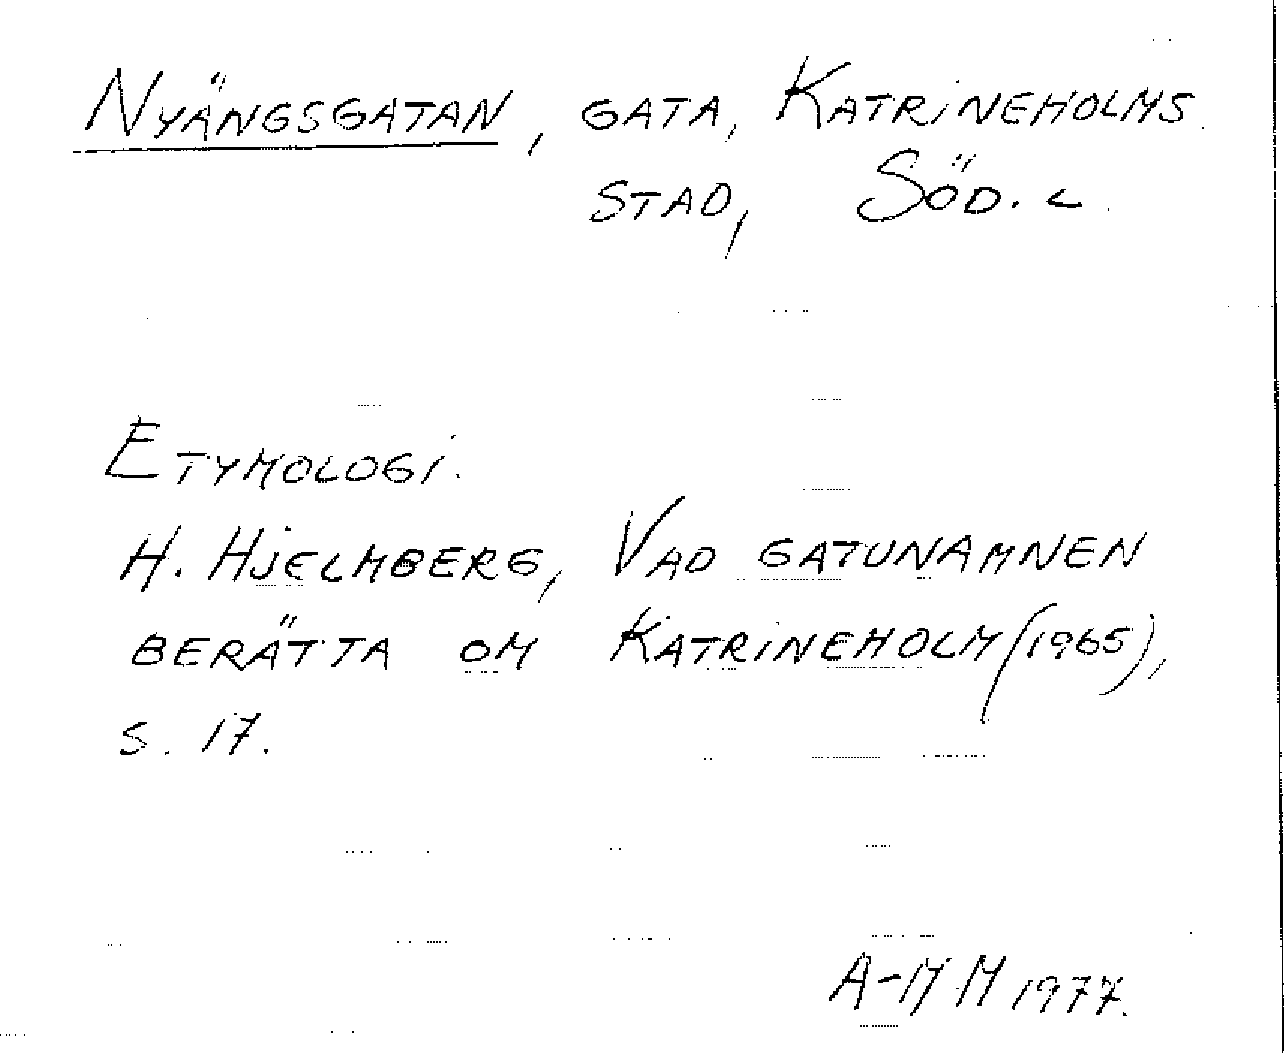 NYÄNGSGATAN, GATA, KATRINEHOLMS
STAD, SÖD. L
ETYMOLOGI.
H. HJELMBERG, VAD GATUNAMNEN
BERÄTTA OM KATRINEHOLM (1965),
S. 17.
A-M M 1977.